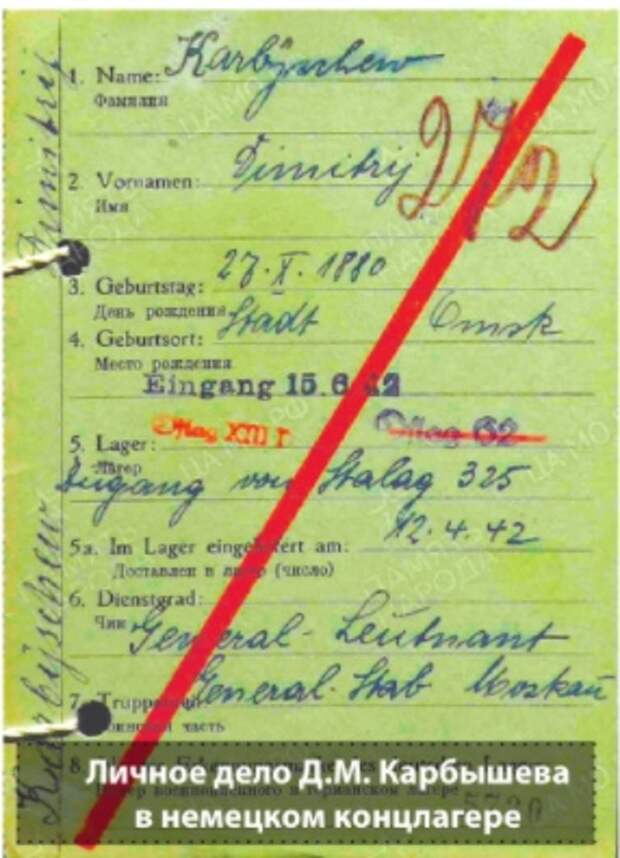 1. Name: Karbyschew
Фамилия
272
2. Vornamen: Dimitrij
Имя
3. Geburtstag: 27. X. 1880
День рождения
4. Geburtsort: Stadt Omsk
Место рождения
Eingang 15.6.42
Oflag XIII D Oflag 62
5. Lager:
Лагерь
Zugang von Stalag 325
5a. Im Lager eingeliefert am: 12.4.42
Доставлен в лагерь (число)
6. Dienstgrad:
Чин General-Leutnant
7. Truppenteil General-Stab Moskau
воинская часть
8.
Karbyschew Dimitrij
Личное дело Д.М. Карбышева
в немецком концлагере